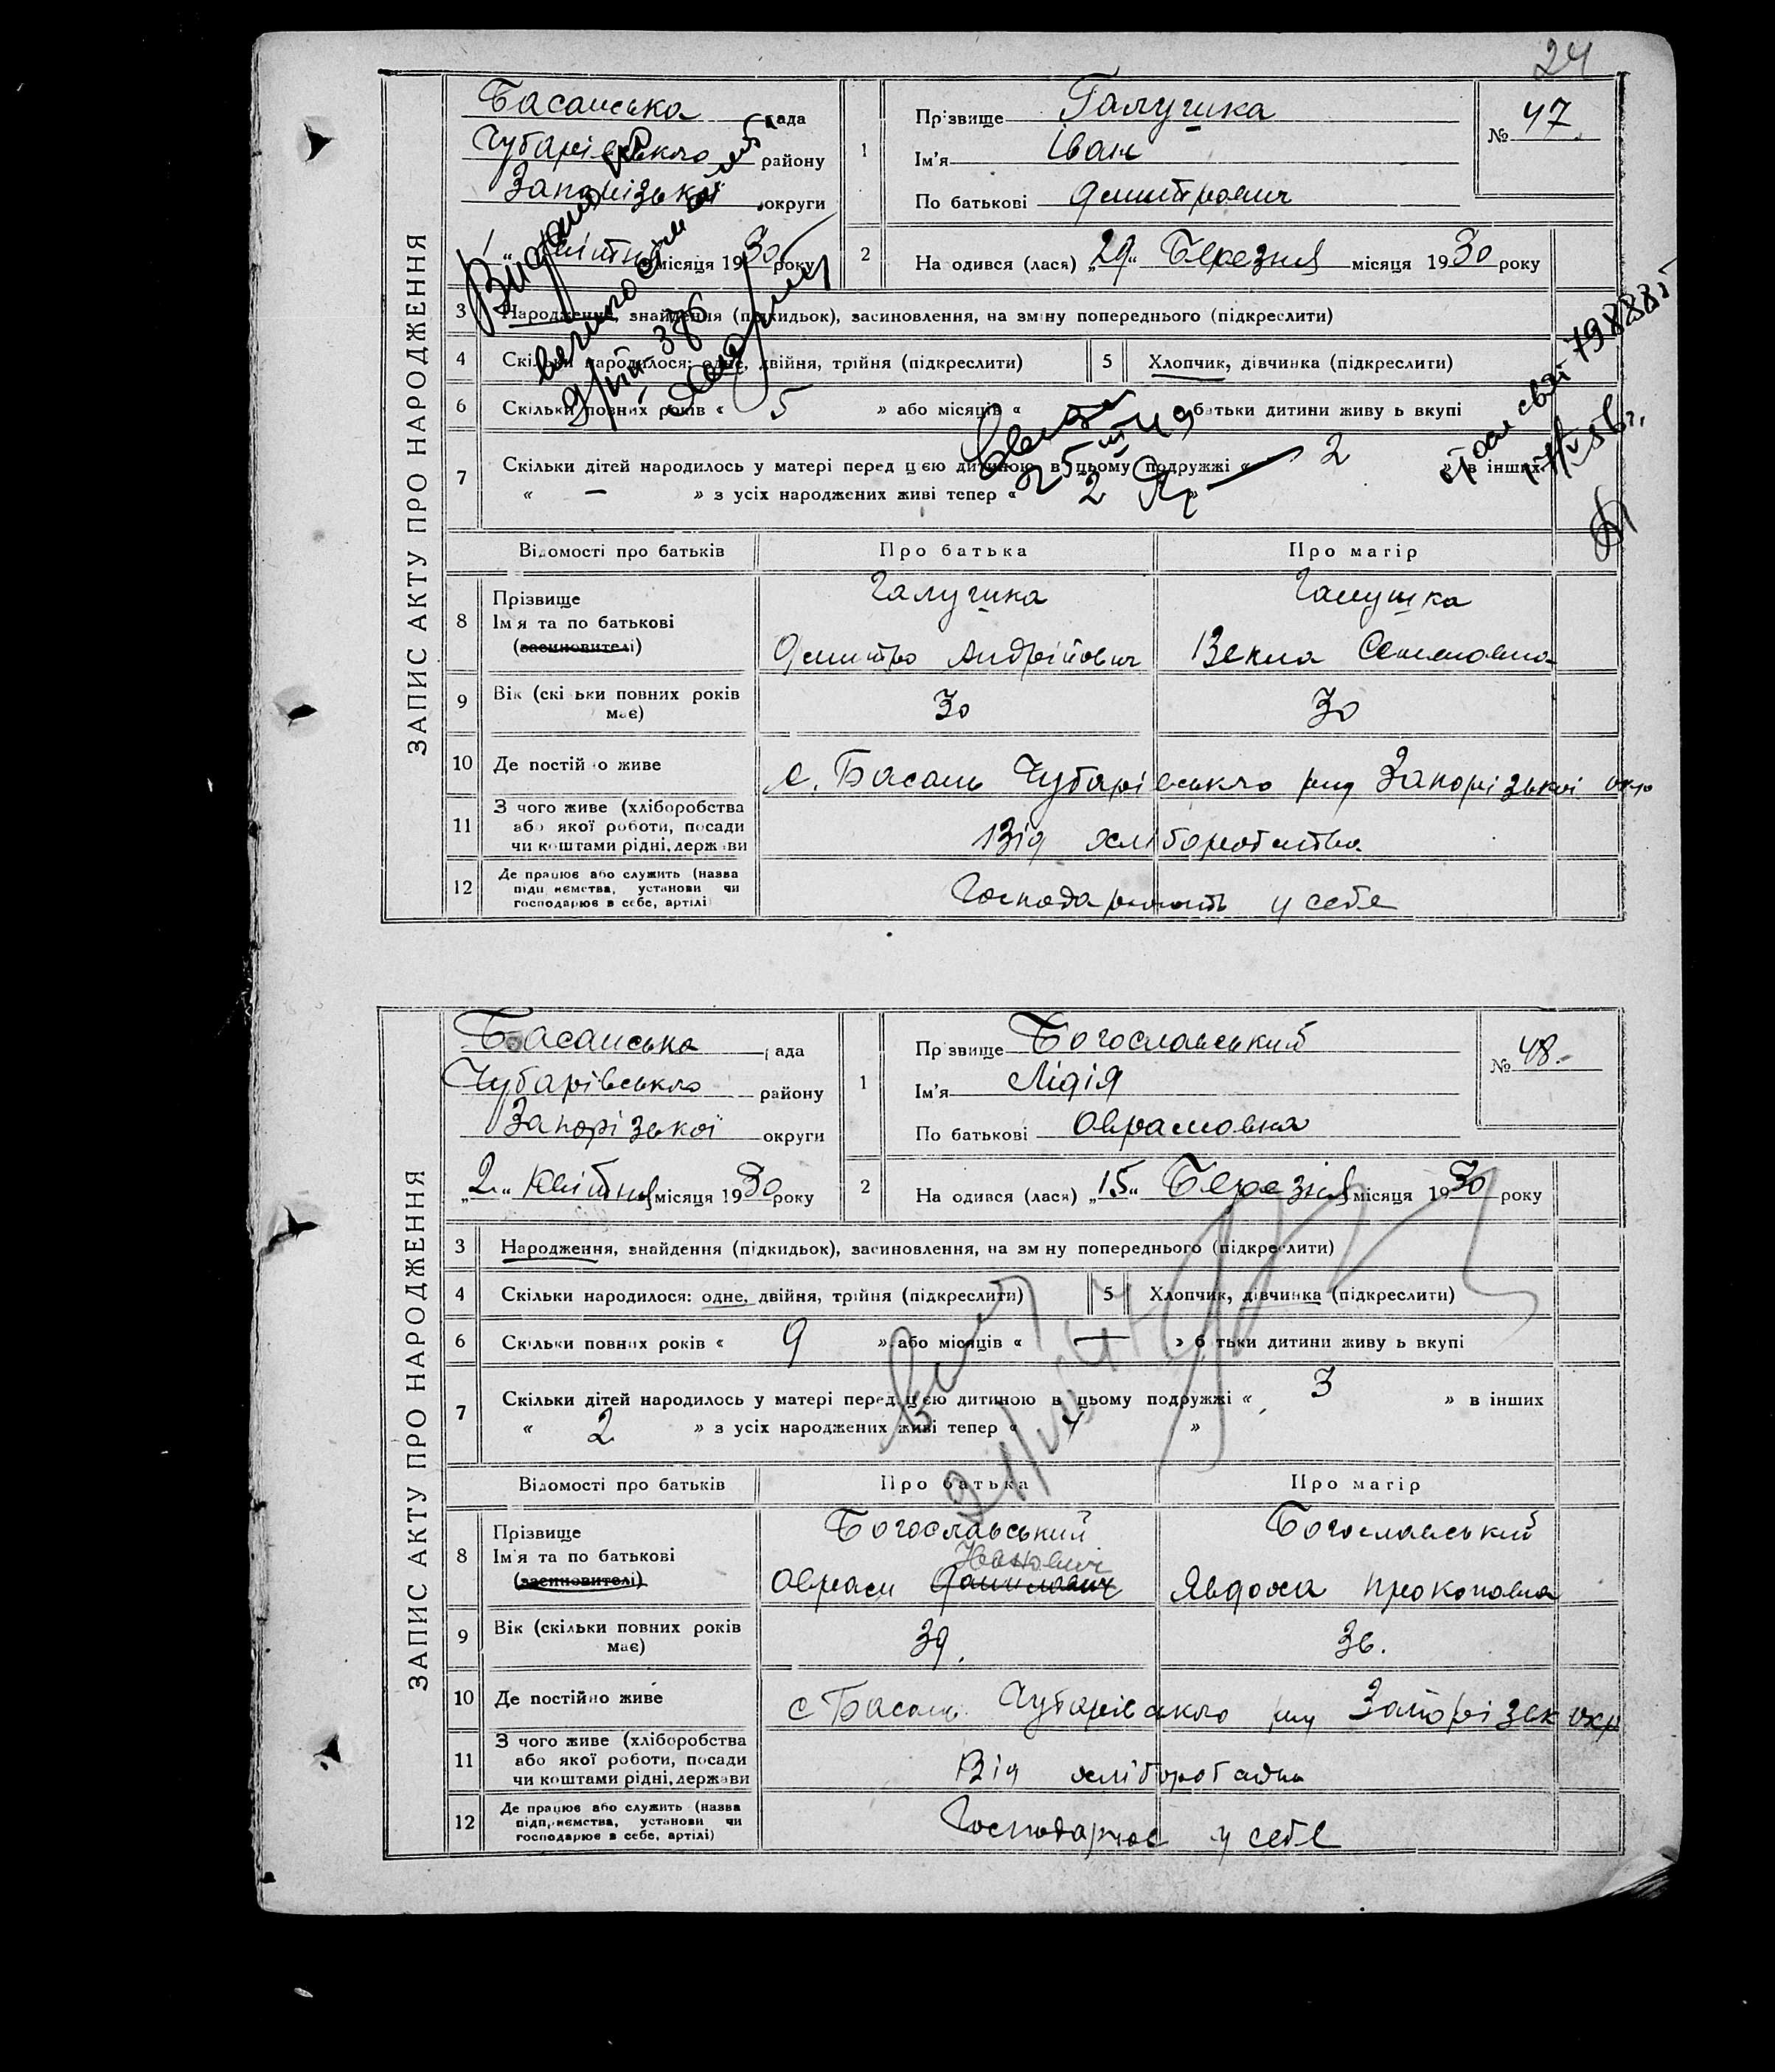 24
ЗАПИС АКТУ ПРО НАРОДЖЕННЯ
Басанська рада
Чубарівського району
Запорізької округи
1 квітня місяця 1930 року
1 Прізвище Галушка
Ім'я Іван
По батькові Дмитрович
№ 47
2 На одився (лася) „29“ Березня місяця 1930 року
3 Народження, знайдення (підкидьок), засиновлення, на зміну попереднього (підкреслити)
4 Скільки народилося: одне, двійня, трійня (підкреслити) 5 Хлопчик, дівчинка (підкреслити)
6 Скільки повних років « 5 » або місяців « батьки дитини живу ь вкупі
7 Скільки дітей народилось у матері перед цією дитиною в цьому подружжі « 2 » в інших
« — » з усіх народжених живі тепер « 2 »
Відомості про батьків Про батька Про матір
8 Прізвище Галушка Галушка
Ім'я та по батькові
(засиновителі) Дмитро Андрійович Векла Семеновна
9 Вік (скі ьки повних років має) 30 30
10 Де постійно живе с. Басань Чубарівського рну Запорізької окр
11 З чого живе (хліборобства або якої роботи, посади чи коштами рідні, держави Від хліборобства
12 Де працює або служить (назва підприємства, установи чи господарює в себе, артілі) Господарюють у себе
Видано
376
25 III 49
798885
ЗАПИС АКТУ ПРО НАРОДЖЕННЯ
Басанська рада
Чубарівського району
Запорізької округи
„2“ Квітня місяця 1930 року
1 Прізвище Богославський
Ім'я Лідія
По батькові Оврамовна
№ 48.
2 На одився (лася) „15“ Березня місяця 1930 року
3 Народження, знайдення (підкидьок), засиновлення, на зм ну попереднього (підкреслити)
4 Скільки народилося: одне, двійня, трійня (підкреслити) 5 Хлопчик, дівчинка (підкреслити)
6 Скільки повних років « 9 » або місяців « — » б тьки дитини живу ь вкупі
7 Скільки дітей народилось у матері перед цією дитиною в цьому подружжі « 3 » в інших
« 2 » з усіх народжених живі тепер « 4 »
Відомості про батьків Про батька Про матір
8 Прізвище Богославський Богославський
Ім'я та по батькові Иванович
(засиновителі) Оврам Данилович Явдоха Прокоповна
9 Вік (скільки повних років має) 39. 36.
10 Де постійно живе с Басань Чубарівського рну Запорізьк окр
11 З чого живе (хліборобства або якої роботи, посади чи коштами рідні, держави Від хліборобства
12 Де працює або служить (назва підприємства, установи чи господарює в себе, артілі) Господарює у себе